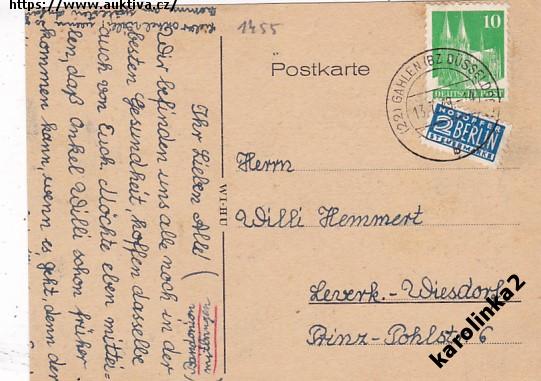 https://www.auktiva.cz/
1455
Postkarte
10
DEUTSCHE POST
(22) GAHLEN (BZ DÜSSELD
NOTOPFER
2 BERLIN
STEUERMARKE
Herrn
Willi Hemmert
Leverk.-Wiesdorf
Prinz-Pohlstr. 6
karolinka2
Ihr Lieben Alle!
Wir befinden uns alle noch in der
besten Gesundheit hoffen dasselbe
auch von Euch. Möchte eben mittei-
len, daß Onkel Willi schon früher
kommen kann, wenn es geht, denn der